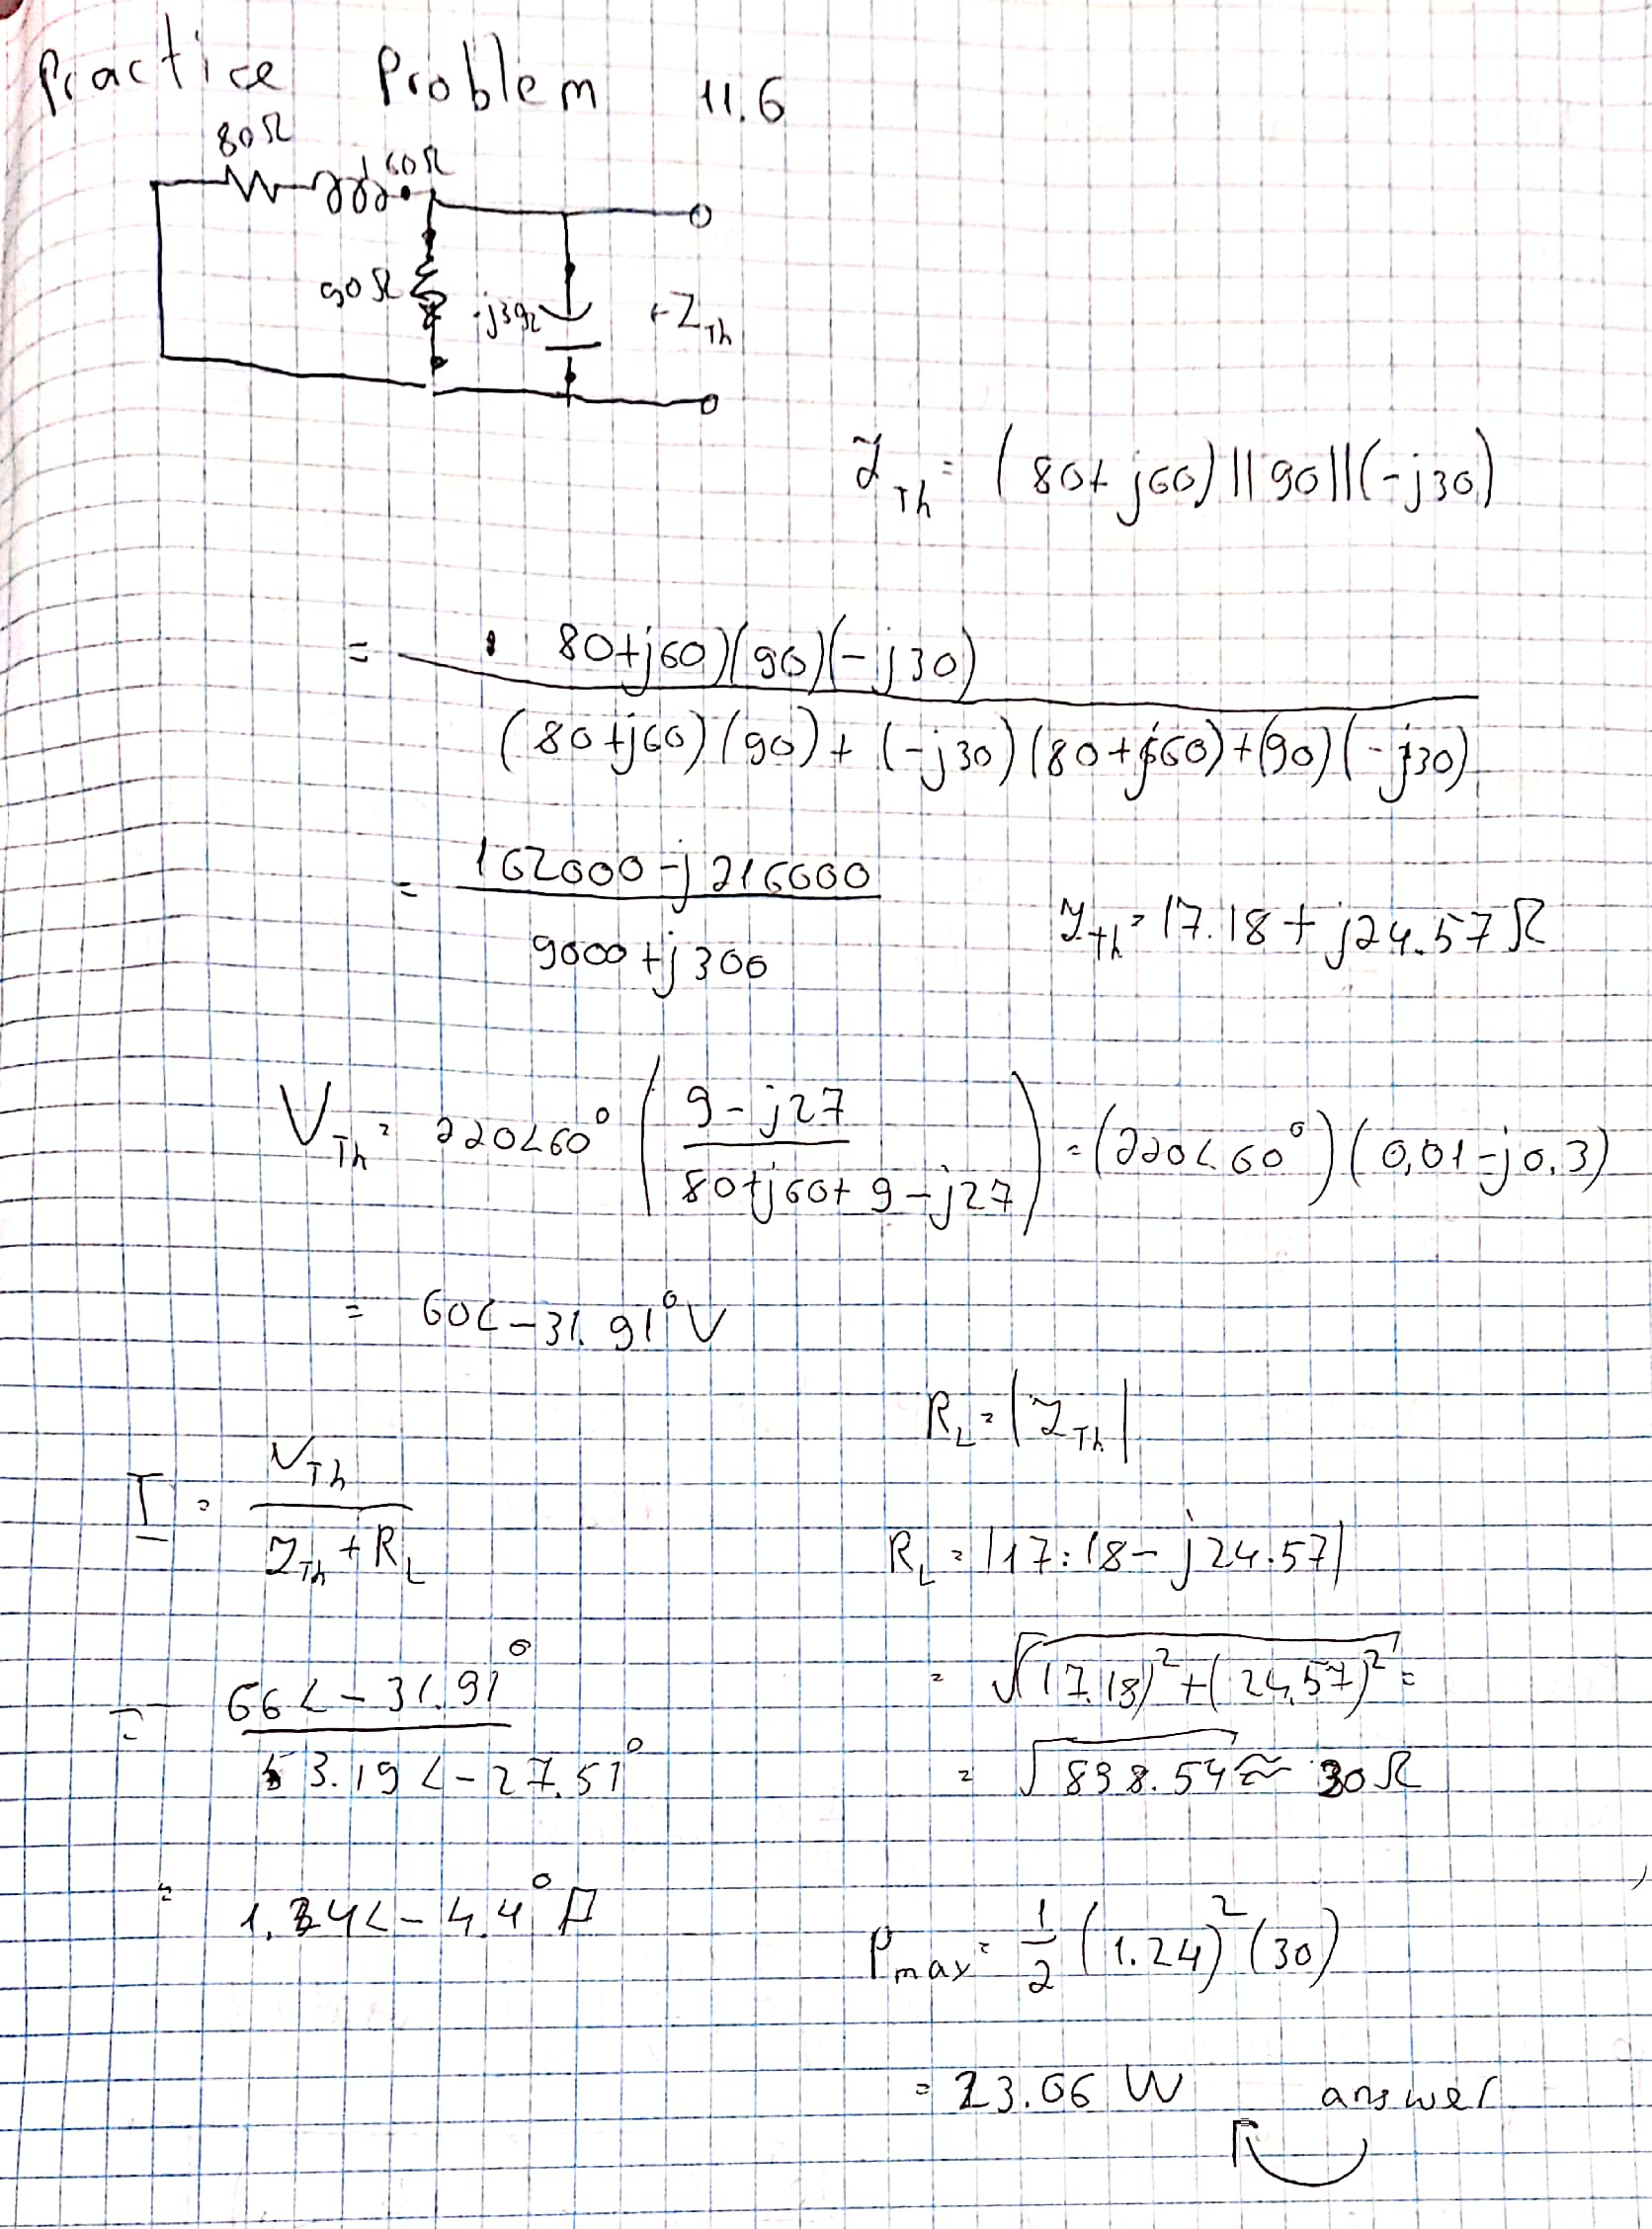 Practice Problem 11.6
80Ω
j60Ω
90Ω
-j30
Z_Th
Z_Th = (80+j60)||90||(-j30)
= 80+j60)(90)(-j30)
(80+j60)(90)+(-j30)(80+j60)+(90)(-j30)
= 162000-j216000
9000+j300
Z_Th = 17.18+j24.57Ω
V_Th = 220<60° (9-j27 / 80+j60+9-j27) = (220<60°)(0,01-j0.3)
= 60<-31.91°V
R_L = |Z_Th|
I = V_Th / Z_Th+R_L
R_L = |17.18-j24.57|
= 66<-31.91°
53.19<-27.51°
= √(17.18)²+(24.57)² =
= √898.54 ≈ 30Ω
= 1.24<-4.4°A
P_max = 1/2 (1.24)²(30)
= 23.06 W answer